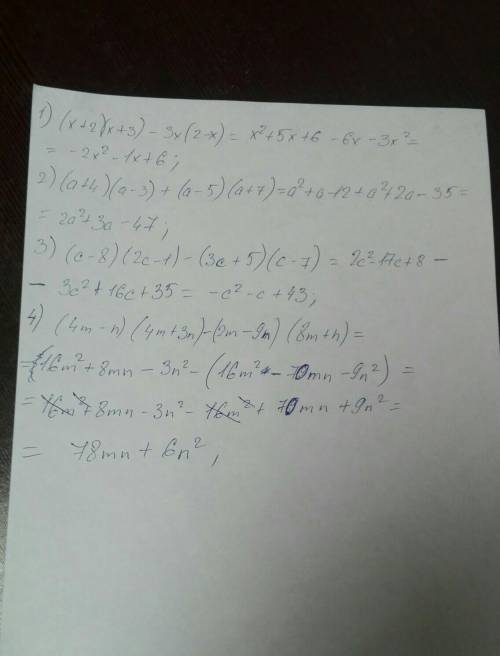 1) (x+2)(x+3) - 3x(2-x) = x²+5x+6 - 6x - 3x² =
= -2x² - 1x + 6;
2) (a+4)(a-3) + (a-5)(a+7) = a²+a-12+a²+2a-35 =
= 2a²+3a-47;
3) (c-8)(2c-1) - (3c+5)(c-7) = 2c²-17c+8 -
- 3c²+16c+35 = -c²-c+43;
4) (4m-n)(4m+3n)-(2m-9n)(8m+n) =
= 16m²+8mn-3n²-(16m²-70mn-9n²) =
= 16m²+8mn-3n²-16m²+70mn+9n² =
= 78mn+6n²,